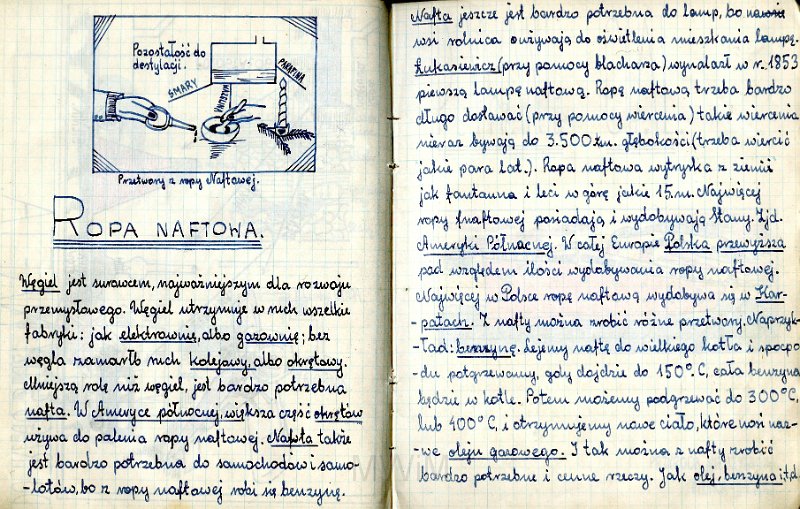 Pozostałość do
destylacji.
SMARY
WAZELINA
PARAFINA
Przetwory z ropy Naftowej.
ROPA NAFTOWA.
Węgiel jest surowcem, najważniejszym dla rozwoju
przemysłowego. Węgiel utrzymuje w ruch wszelkie
fabryki: jak elektrownię, albo gazownię; bez
węgla zamarłb ruch kolejowy, albo okrętowy.
Mniejszą rolę niż węgiel, jest bardzo potrzebna
nafta. W Ameryce północnej, większa część okrętów
używa do palenia ropy naftowej. Nafta także
jest bardzo potrzebna do samochodów i samo-
-lotów, bo z ropy naftowej robi się benzynę.
Nafta jeszcze jest bardzo potrzebna do lamp, bo na
wsi rolnica używają do oświetlenia mieszkania lampę.
Łukasiewicz (przy pomocy blacharza) wynalazł w r. 1853
pierwszą lampę naftową. Ropę naftową trzeba bardzo
długo dostawać (przy pomocy wiercenia) takie wiercenia
nieraz bywają do 3.500 m. głębokości (trzeba wiercić
jakie para lat.). Ropa naftowa wytryska z ziemii
jak fontanna i leci w górę jakie 15.m. Najwięcej
ropy naftowej posiadają i wydobywają Stany. Zjd.
Ameryki Północnej. W całej Europie Polska przewyższa
pod względem ilości wydobywania ropy naftowej.
Najwięcej w Polsce ropę naftową wydobywa się w Kar-
-patach. Z nafty można zrobić różne przetwory. Naprzyk-
-ład: benzynę. Lejemy naftę do wielkiego kotła i spopo
du potgrzewamy, gdy dojdzie do 150°C, cała benzyna
będzie w kotle. Potem możemy podgrzewać do 300°C,
lub 400°C, i otrzymujemy nowe ciało, które nosi naz-
-we oleju gazowego. I tak można z nafty zrobić
bardzo potrzebne i cenne rzeczy. Jak olej, benzyna i,t,d.